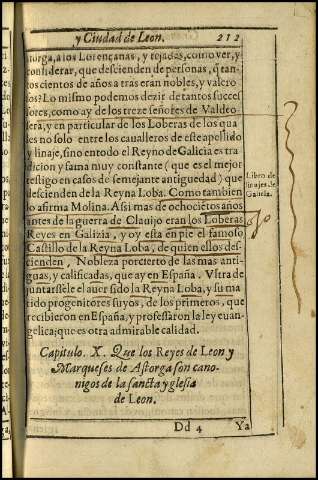 y Ciudad de Leon. 212
ſtorga, a los Lorençanas, y tejadas, como ver, y
conſiderar, que deſcienden de perſonas, q̃ tan-
tos cientos de años a tras eran nobles, y valero
ſos? Lo miſmo podemos dezir de tantos ſucceſ
ſores, como ay de los treze ſeñores de Valdeo
ſera, y en particular de los Loberas de los qua
les no ſolo entre los caualleros de eſte apellido
y linaje, ſino en todo el Reyno de Galicia es tra
dicion y fama muy conſtante (que es el mejor
teſtigo en caſos de ſemejante antiguedad) que
deſcienden de la Reyna Loba. Como tambien
lo afirma Molina. Aſsi mas de ochociētos años
antes de la guerra de Clauijo eran los Loberas
Reyes en Galizia, y oy esta en pie el famoſo
Caſtillo de la Reyna Loba, de quien ellos deſ-
cienden, Nobleza por cierto de las mas anti-
guas, y calificadas, que ay en España. Vltra de
juntarſele el auer ſido la Reyna Loba, y ſu ma
rido progenitores ſuyos, de los primeros, que
recibieron en España, y profeſſaron la ley euan-
gelica; que es otra admirable calidad.
Libro de
linajes de
Galicia.
Capitulo. X. Que los Reyes de Leon y
Marqueſes de Aſtorga ſon cano-
nigos de la ſancta ygleſia
de Leon.
Dd 4 Ya